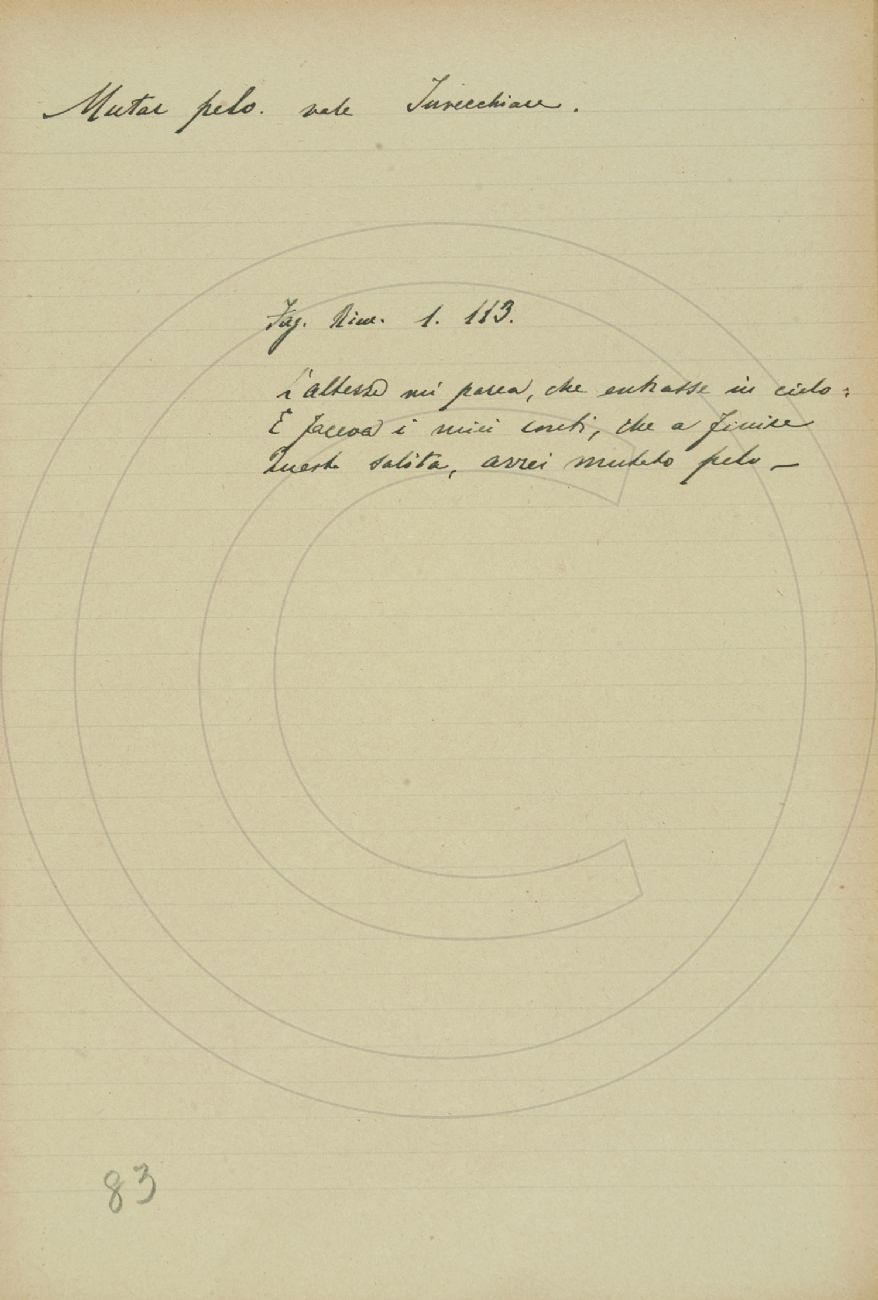 Mutar pelo. vale Invecchiare.
Fag. Rim. 1. 113.
L'altezza mi parea, che entrasse in cielo:
E faceva i miei conti, che a finire
Questa salita, avrei mutato pelo —
83